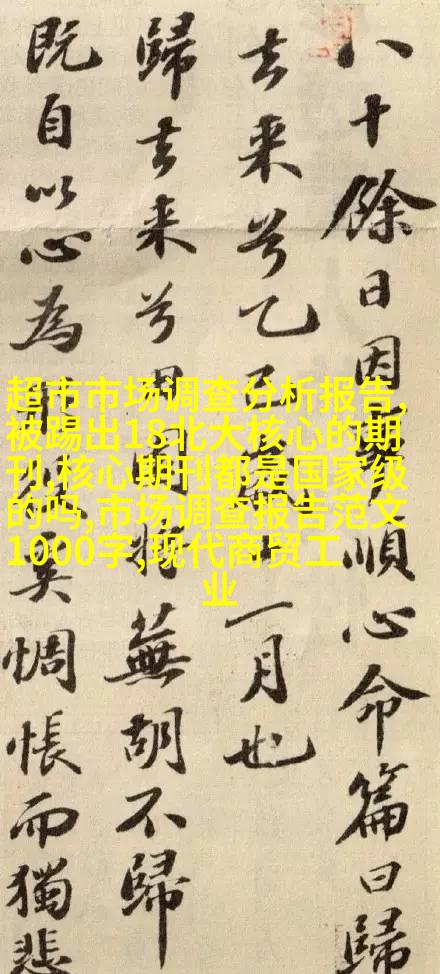 八十餘日因事順心命篇曰歸
去来兮乙巳歲一月也
歸去来兮田園将蕪胡不歸
既自以心為奚惆悵而獨悲
超市市场调查分析报告,
被踢出18北大核心的期
刊,核心期刊都是国家级
的吗,市场调查报告范文
1000字,现代商贸工
业